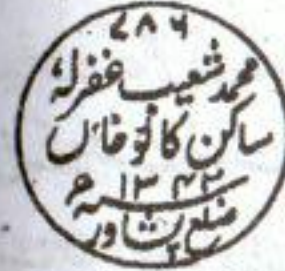 ۷۸۶
محمد شعیب غفرلہٗ
ساکن کالوخاں
۱۳۴۲ھ
ضلع پشاور